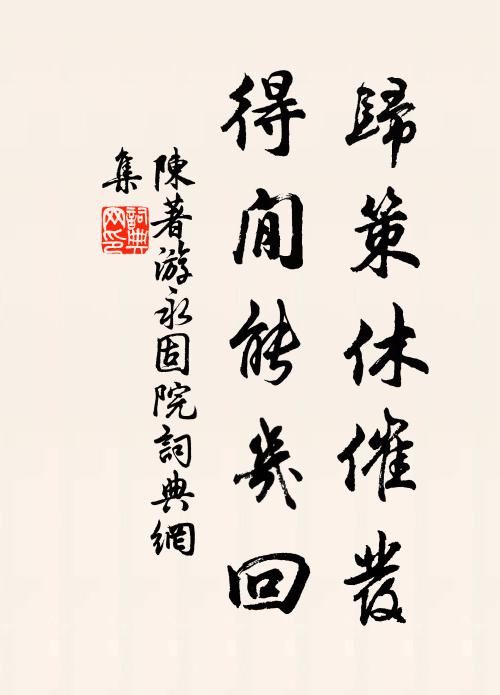 歸策休催發
得閒能幾回
陳著游永固院詞典網
集
詞典
网印